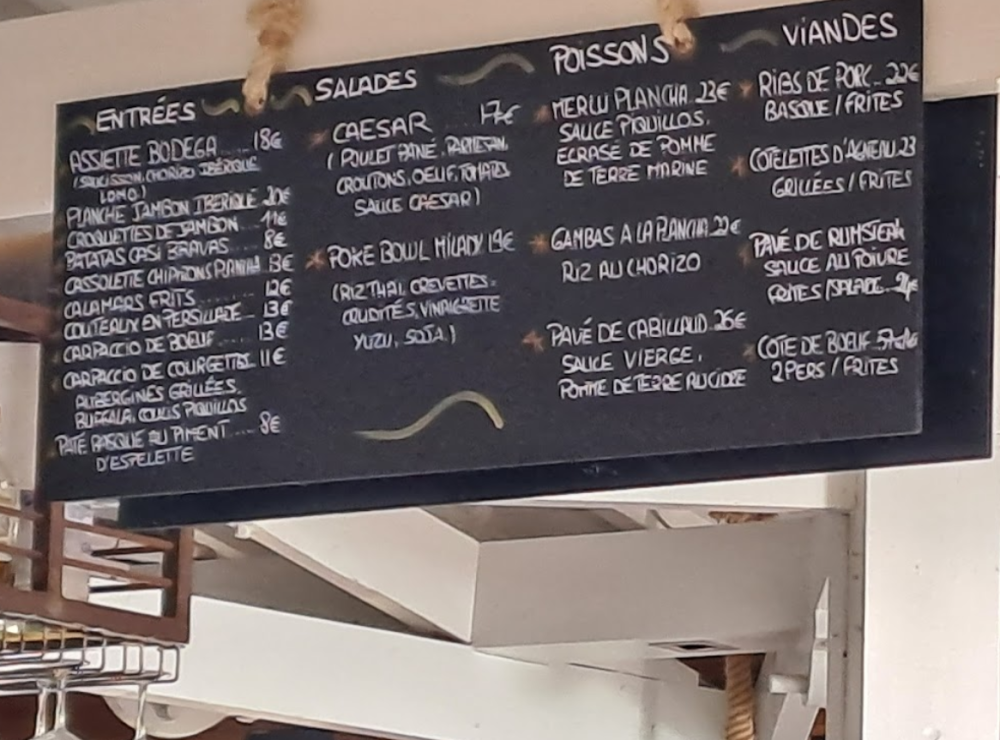 ENTRÉES
ASSIETTE BODEGA .... 18€
(SAUCISSON, CHORIZO IBÉRIQUE
LOMO)
PLANCHE JAMBON IBERIQUE 20€
CROQUETTES DE JAMBON .. 11€
PATATAS CASI BRAVAS .... 8€
CASSOLETTE CHIPIRONS PLANCHA 13€
CALAMARS FRITS ........ 12€
COUTEAUX EN PERSILLADE ... 13€
CARPACCIO DE BOEUF ..... 13€
CARPACCIO DE COURGETTES. 11€
AUBERGINES GRILLÉES,
BUFFALA, COULIS PIQUILLOS
PATÉ BASQUE AU PIMENT .... 8€
D'ESPELETTE
SALADES
CAESAR .... 17€
(POULET PANÉ, PARMESAN,
CROUTONS, OEUF, TOMATES
SAUCE CAESAR)
POKE BOWL MILADY 19€
(RIZ THAI, CREVETTES,
CRUDITÉS, VINAIGRETTE
YUZU, SOJA.)
POISSONS
MERLU PLANCHA. 23€
SAUCE PIQUILLOS.
ECRASÉ DE POMME
DE TERRE MARINE
GAMBAS A LA PLANCHA 22€
RIZ AU CHORIZO
PAVÉ DE CABILLAUD. 26€
SAUCE VIERGE,
POMME DE TERRE AU CIDRE
VIANDES
RIBS DE PORC .. 22€
BASQUE / FRITES
COTELETTES D'AGNEAU. 23
GRILLÉES / FRITES
PAVÉ DE RUMSTEAK
SAUCE AU POIVRE
FRITES / SALADE
COTE DE BOEUF
2 PERS / FRITES